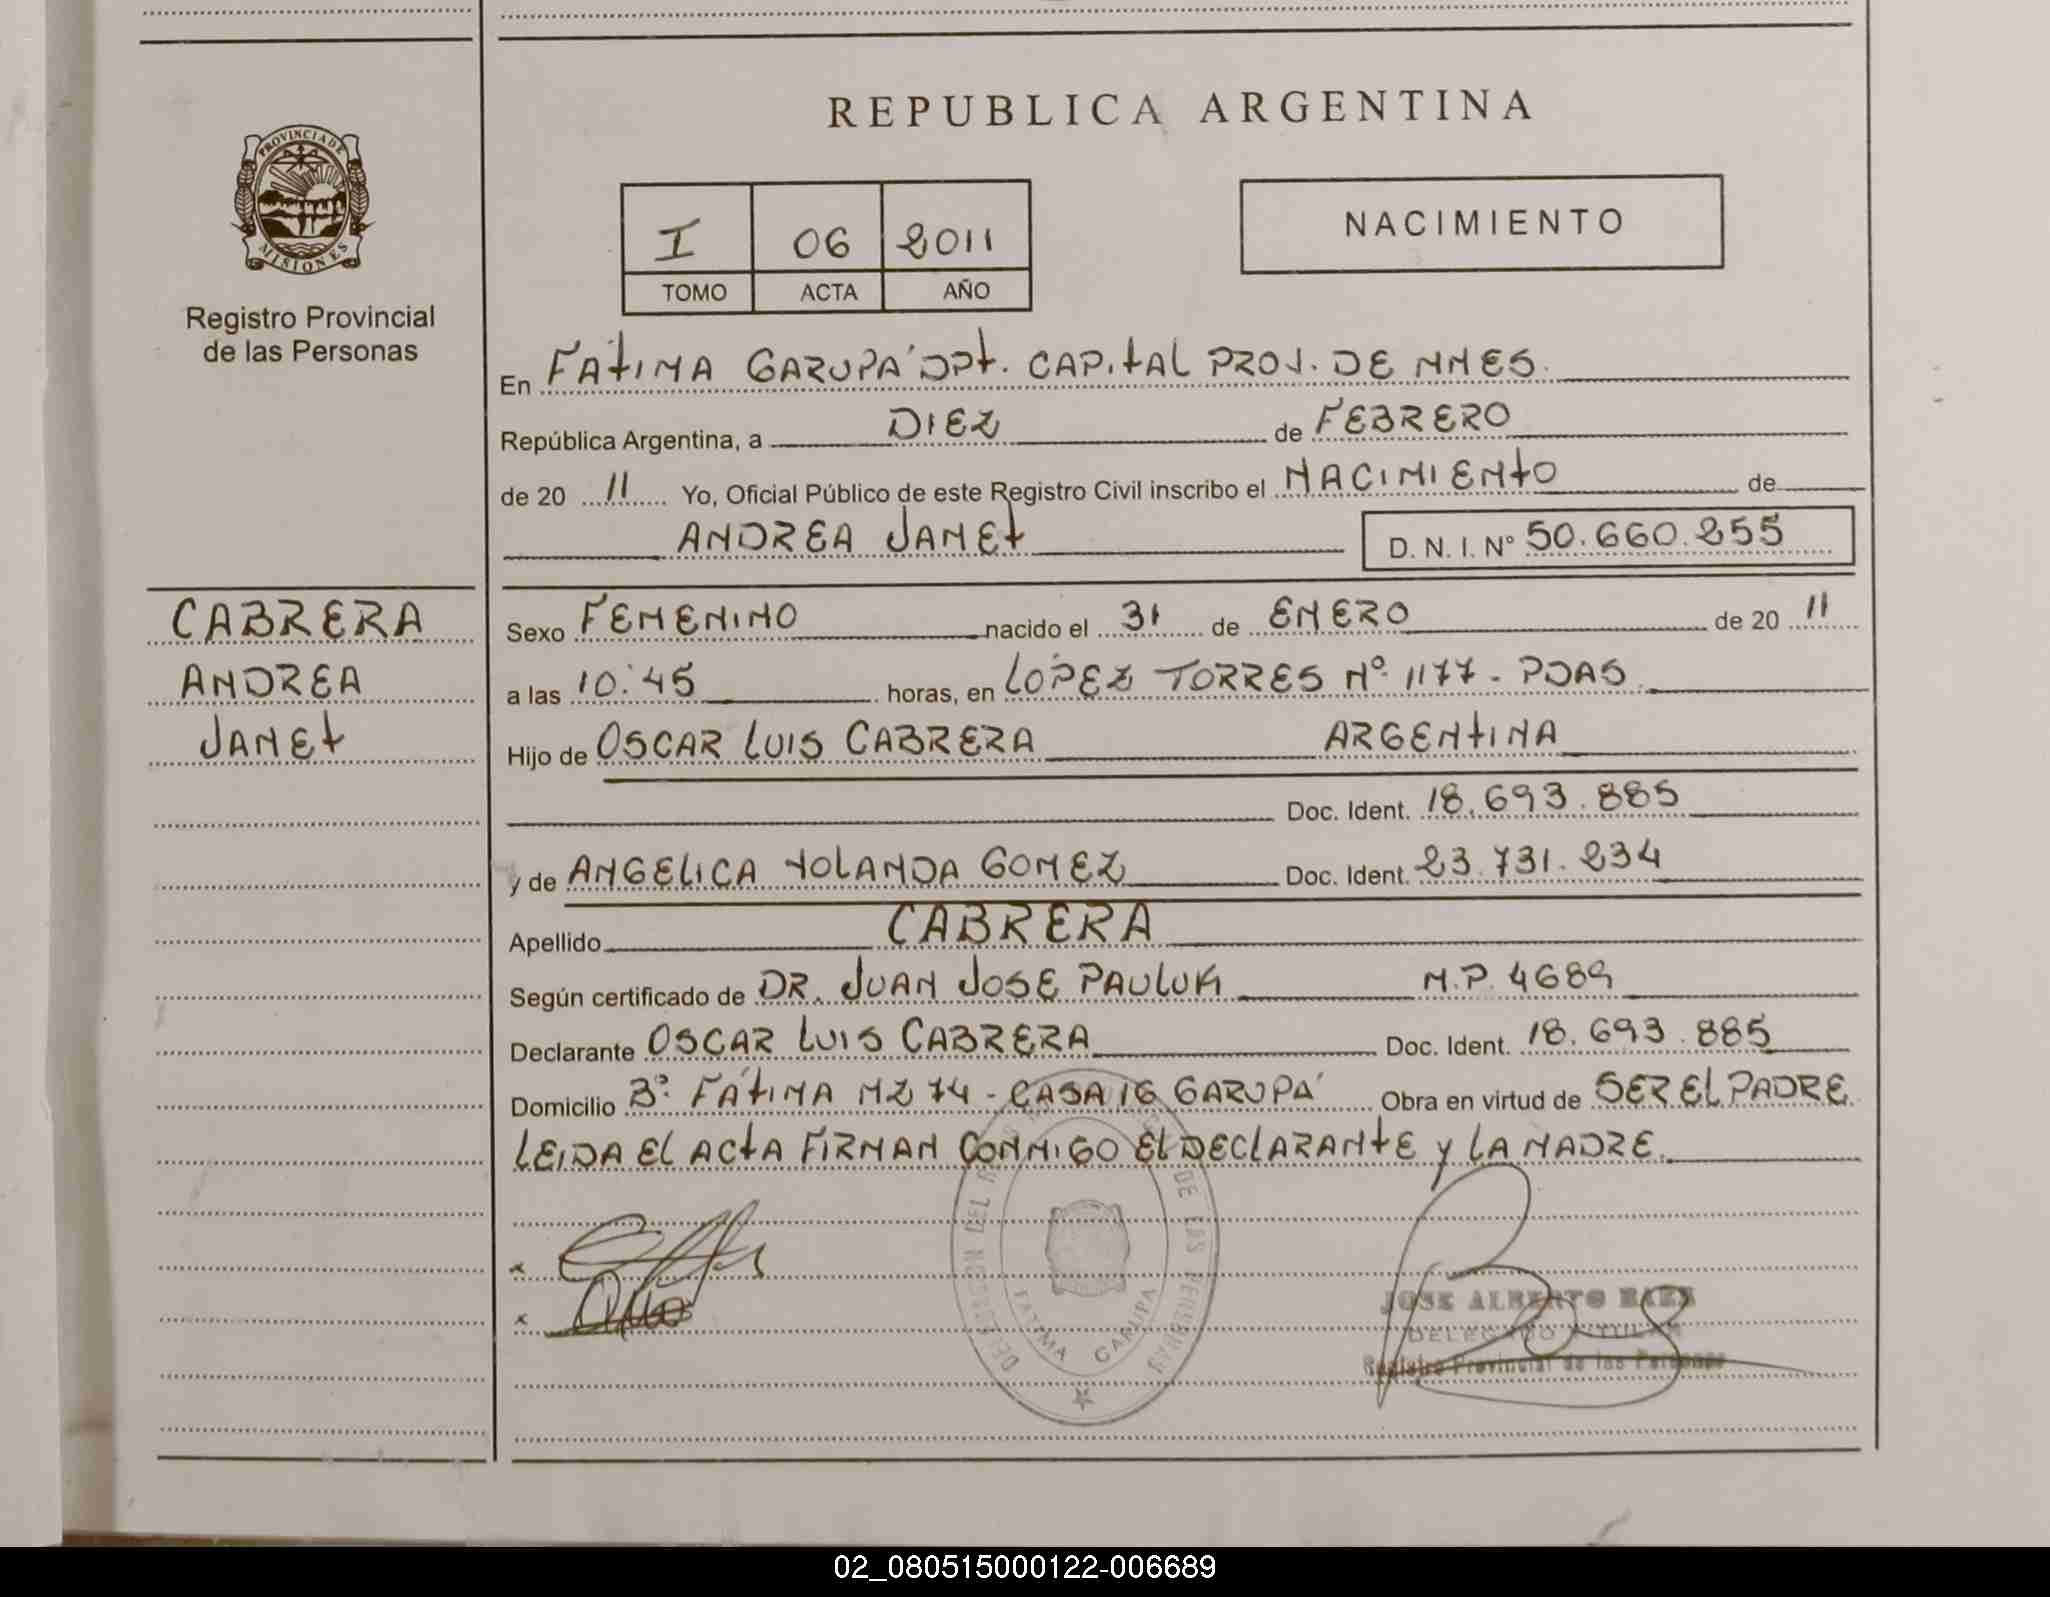 REPUBLICA ARGENTINA
PROVINCIA DE
MISIONES
Registro Provincial
de las Personas
I 06 2011
TOMO ACTA AÑO
NACIMIENTO
En FÁTIMA GARUPÁ DPT. CAPITAL PROV. DE MNES.
República Argentina, a DIEZ de FEBRERO
de 20 11 Yo, Oficial Público de este Registro Civil inscribo el NACIMIENTO de
ANDREA JANET D. N. I. Nº 50.660.255
CABRERA
ANDREA
JANET
Sexo FEMENINO nacido el 31 de ENERO de 20 11
a las 10:45 horas, en LÓPEZ TORRES Nº 1177 - PDAS
Hijo de OSCAR LUIS CABRERA ARGENTINA
Doc. Ident. 18.693.885
y de ANGELICA YOLANDA GOMEZ Doc. Ident. 23.731.234
Apellido CABRERA
Según certificado de DR. JUAN JOSE PAULUK M.P. 4689
Declarante OSCAR LUIS CABRERA Doc. Ident. 18.693.885
Domicilio Bº FÁTIMA MZ 74 - CASA 16 GARUPÁ Obra en virtud de SER EL PADRE
LEIDA EL ACTA FIRMAN CONMIGO EL DECLARANTE Y LA MADRE.
DE LAS PERSONAS
FATIMA GARUPA
JOSE ALBERTO BAEZ
DELEGADO TITULAR
Registro Provincial de las Personas
02_080515000122-006689